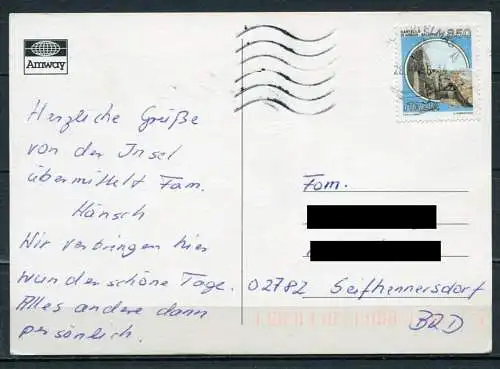 Amway
850
CASTELLO
ITALIA
Herzliche Grüße
von der Insel
übermittelt Fam.
Hänsch
Wir verbringen hier
wunderschöne Tage.
Alles andere dann
persönlich.
Fam.
02782 Seifhennersdorf
BRD